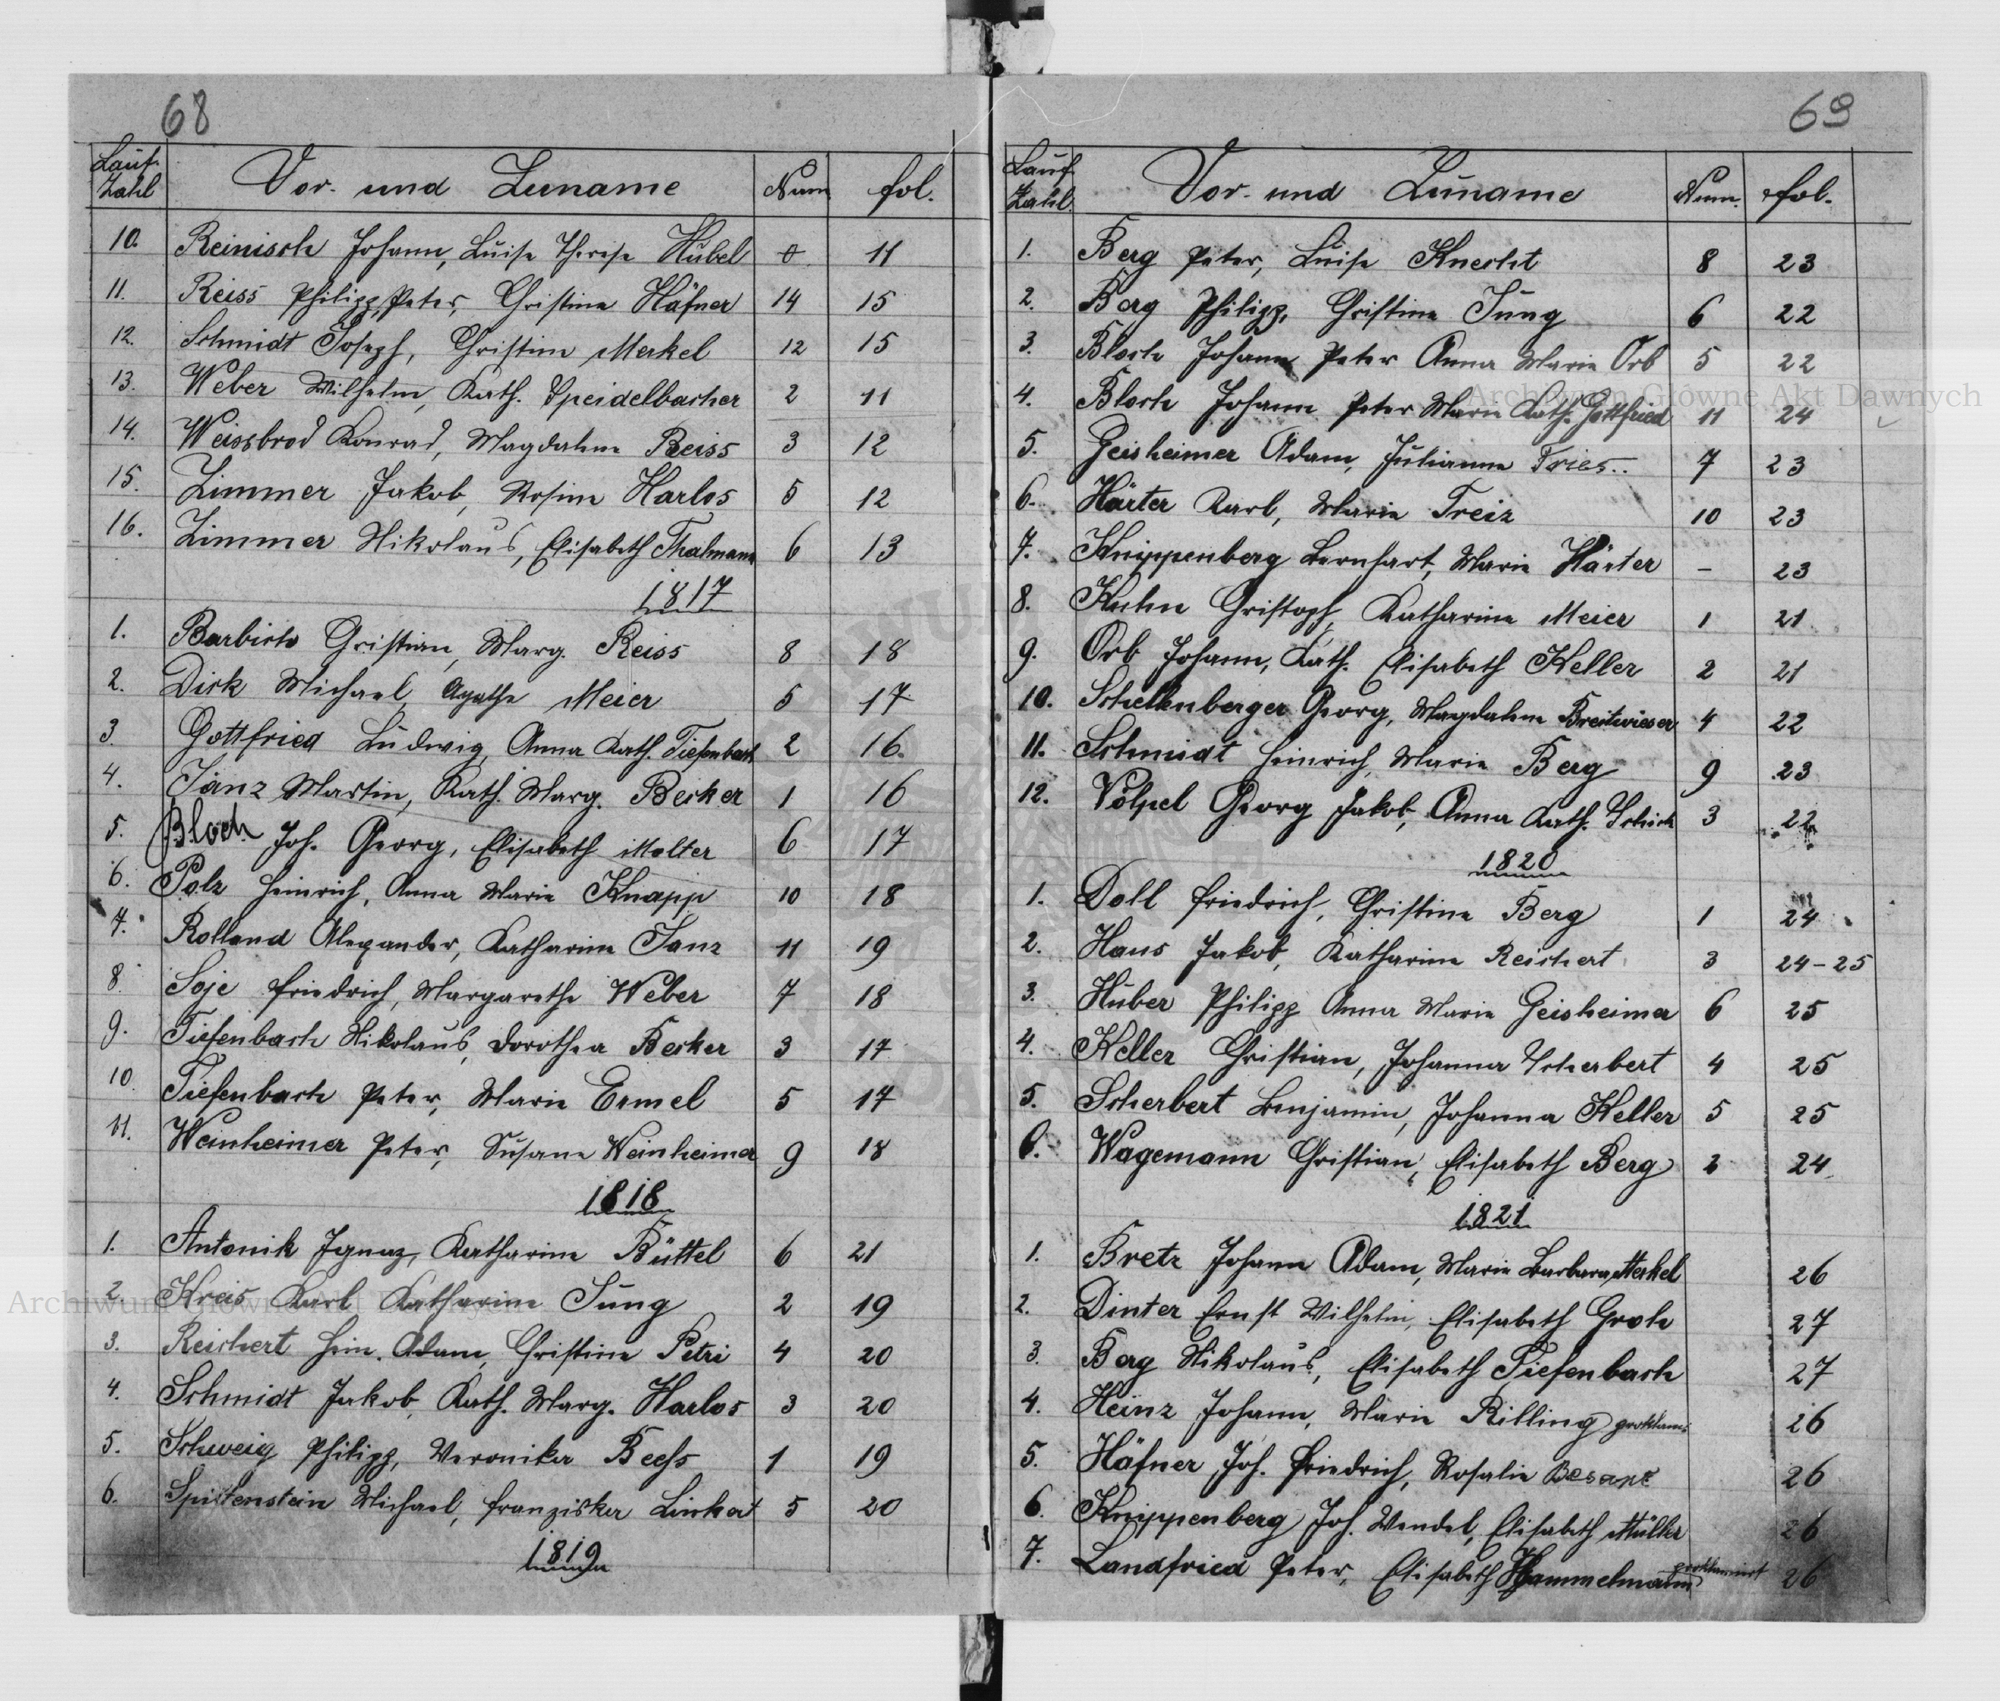 68
Lauf. Zahl Vor- und Zuname Num. fol.
10. Reinisch Johann, Luise Therese Hubel 0 11
11. Reiss Philipp Peter, Christine Häfner 14 15
12. Schmidt Joseph, Christine Merkel 12 15
13. Weber Wilhelm, Kath. Speidelbacher 2 11
14. Weissbrod Konrad, Magdalene Reiss 3 12
15. Zimmer Jakob, Rosine Harlos 5 12
16. Zimmer Nikolaus, Elisabeth Thalmann 6 13
1817
1. Barbich Christian, Marg. Reiss 8 18
2. Dirk Michael, Agathe Meier 5 17
3. Gottfried Ludwig, Anna Kath. Tiefenbach 2 16
4. Janz Martin, Kath. Marg. Becker 1 16
5. Bloch Joh. Georg, Elisabeth Molter 6 17
6. Polz Heinrich, Anna Marie Knapp 10 18
7. Rolland Alexander, Katharine Janz 11 19
8. Soje Friedrich, Margarethe Weber 7 18
9. Tiefenbach Nikolaus, Dorothea Becker 3 17
10. Tiefenbach Peter, Marie Ermel 5 17
11. Weinheimer Peter, Susane Weinheimer 9 18
1818
1. Antonik Ignaz, Katharine Büttel 6 21
2. Kreis Karl Katharine Jung 2 19
3. Reichert Hein. Adam, Christine Petri 4 20
4. Schmidt Jakob, Kath. Marg. Harlos 3 20
5. Schweig Philipp, Veronika Beehs 1 19
6. Spittenstein Michael, Franziska Linkert 5 20
1819
69
Lauf. Zahl. Vor- und Zuname Num. fol.
1. Berg Peter, Luise Knecht 8 23
2. Berg Philipp, Christine Jung 6 22
3. Bloch Johann Peter Anna Marie Orb 5 22
4. Bloch Johann Peter Marie Kath. Gottfried 11 24
5. Geisheimer Adam, Julianne Fries.. 7 23
6. Härter Karl, Marie Treiz 10 23
7. Knippenberg Bernhart, Marie Härter - 23
8. Kuhn Christoph, Katharine Meier 1 21
9. Orb Johann, Kath. Elisabeth Keller 2 21
10. Schellenberger Georg, Magdalene Breitwieser 4 22
11. Schmidt Heinrich, Marie Berg 9 23
12. Völpel Georg Jakob, Anna Kath. Schick 3 22
1820
1. Doll Friedrich, Christine Berg 1 24
2. Haus Jakob, Katharine Reichert 3 24-25
3. Huber Philipp Anna Marie Geisheimer 6 25
4. Keller Christian, Johanna Scherbert 4 25
5. Scherbert Benjamin, Johanna Keller 5 25
6. Wagemann Christian, Elisabeth Berg 2 24
1821
1. Bretz Johann Adam, Marie Barbara Merkel 26
2. Dinter Ernst Wilhelm, Elisabeth Groh 27
3. Berg Nikolaus, Elisabeth Tiefenbach 27
4. Heinz Johann, Marie Rilling proklam. 26
5. Häfner Joh. Friedrich, Rosalie Besant 26
6. Knippenberg Joh. Wendel, Elisabeth Müller 26
7. Landfried Peter, Elisabeth Hammelmann proklamirt 26
Archiwum Główne Akt Dawnych